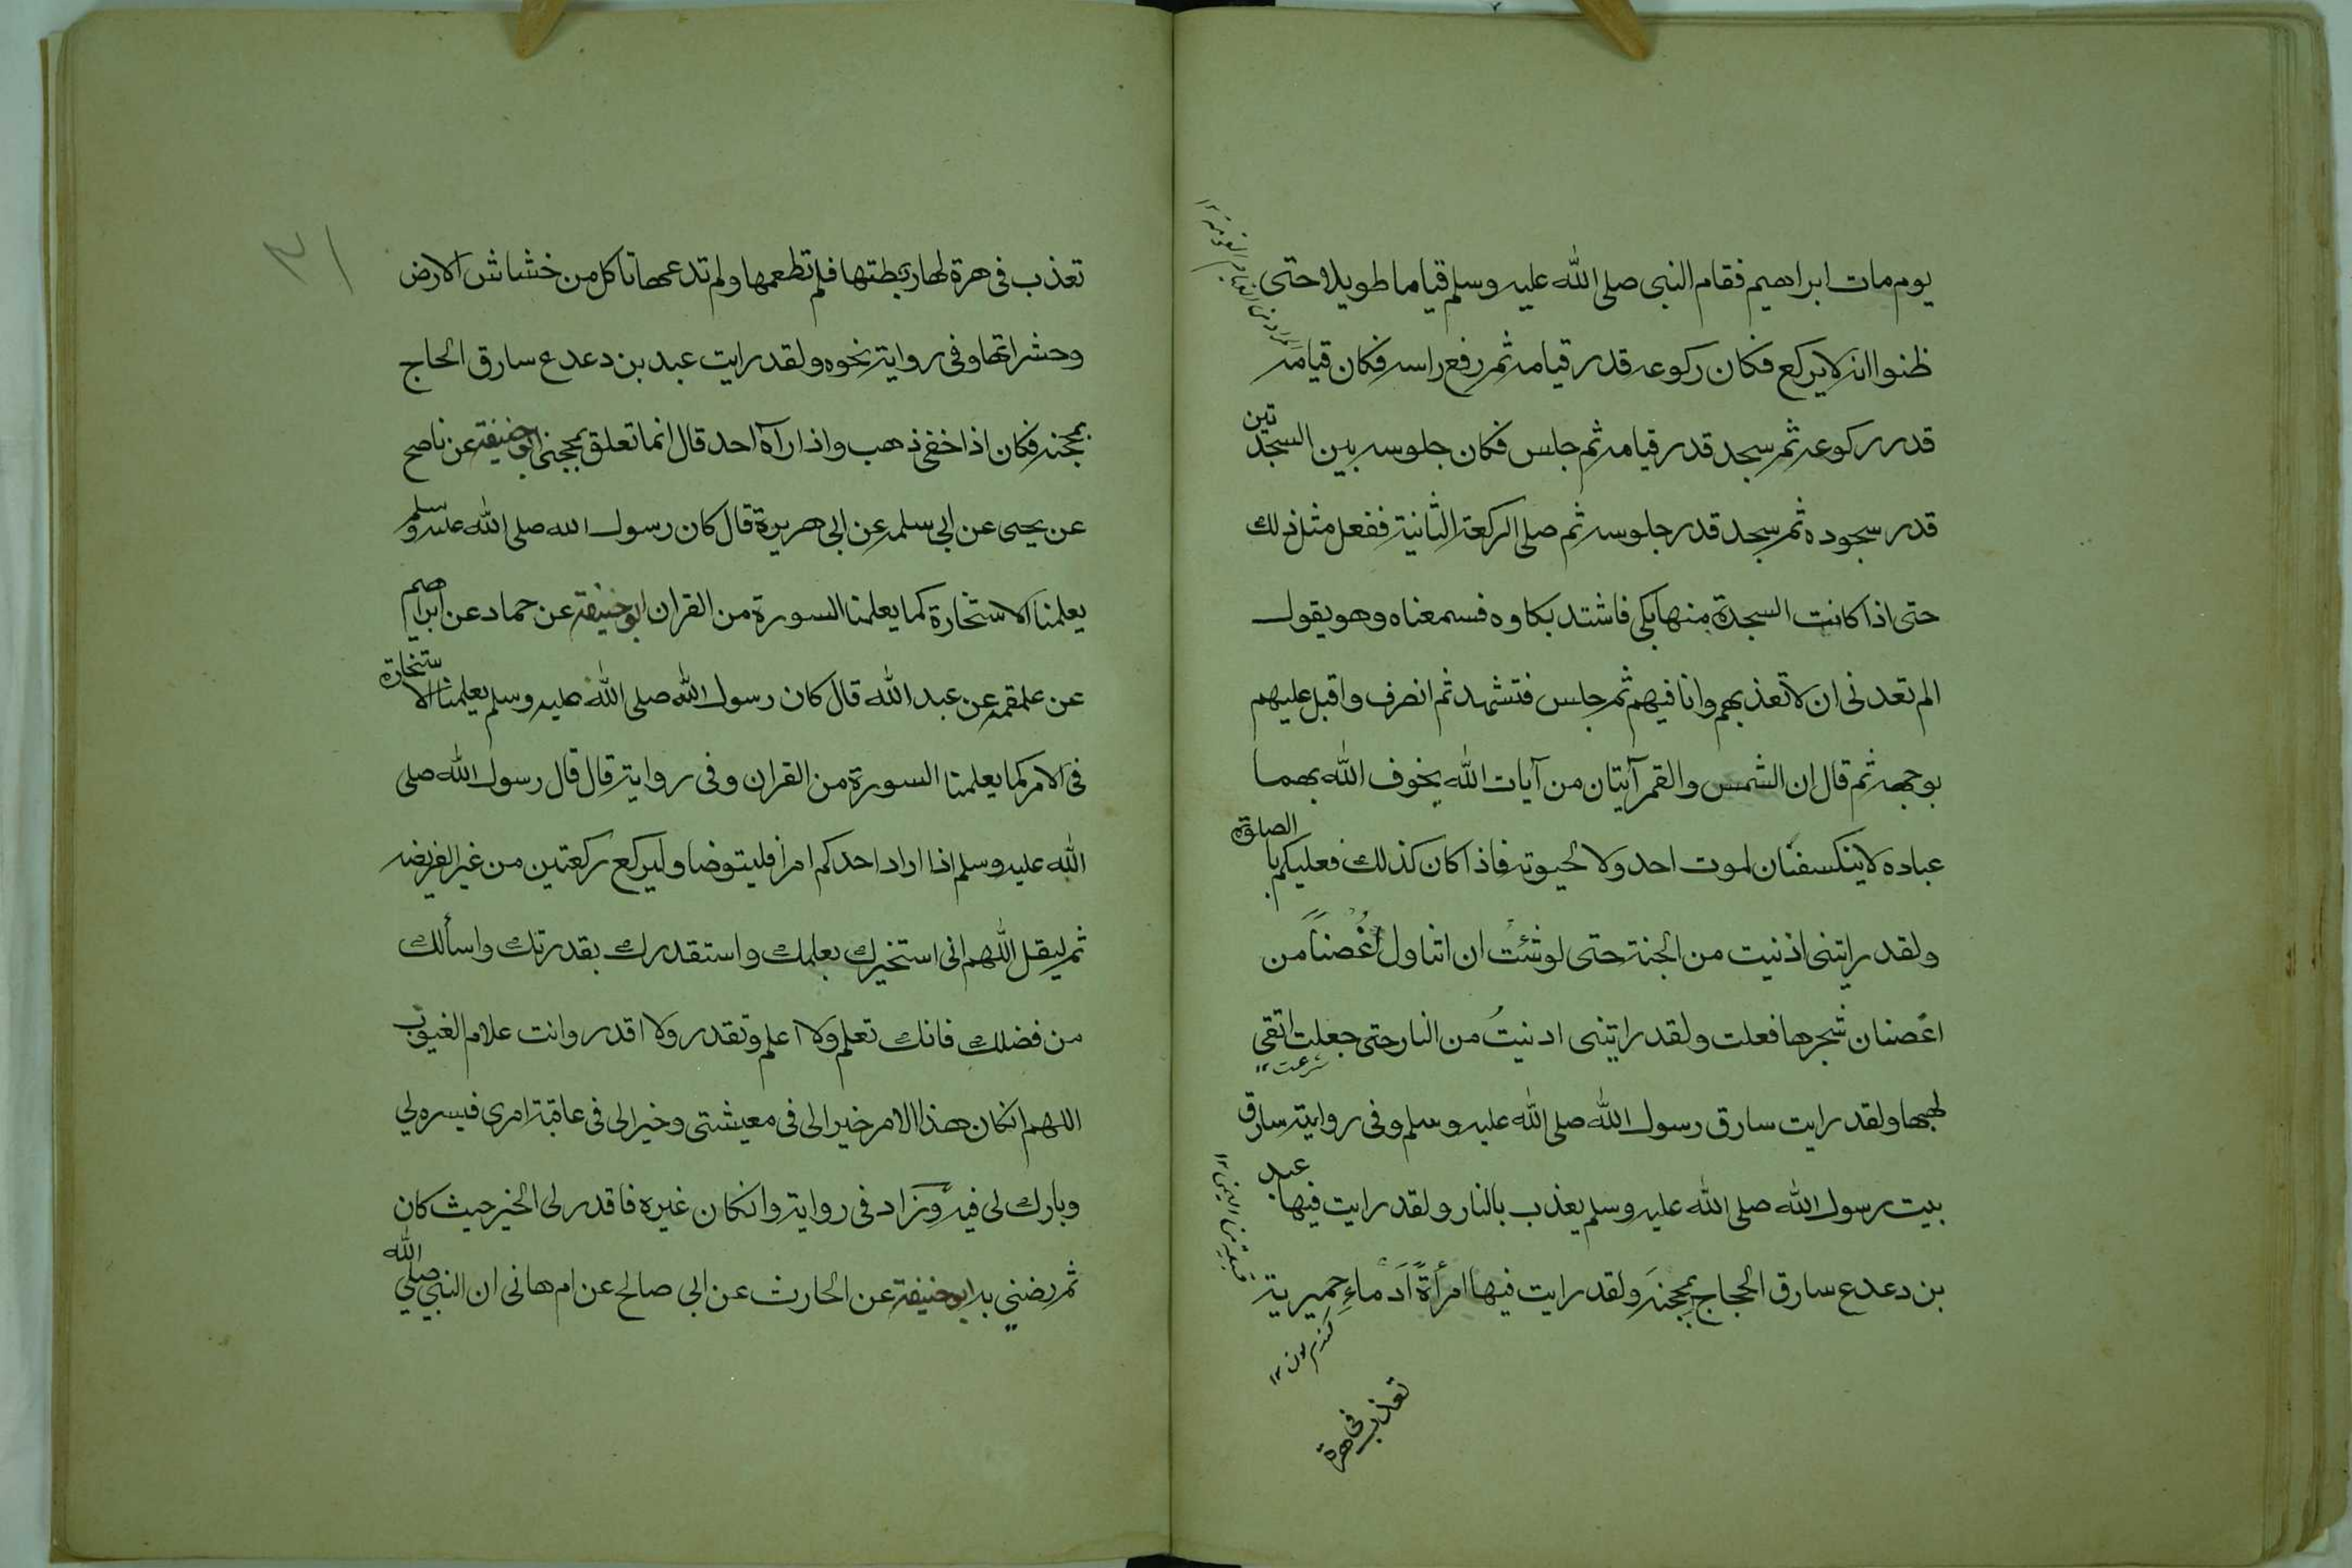 يوم مات ابراهيم فقام النبى صلى الله عليه وسلم قياما طويلا حتى
ظنوا انه لايركع فكان ركوعه قدر قيامه ثم رفع راسه فكان قيامه
قدر ركوعه ثم سجد قدر قيامه ثم جلس فكان جلوسه بين السجدتين
قدر سجوده ثم سجد قدر جلوسه ثم صلى الركعة الثانية ففعل مثل ذلك
حتى اذا كانت السجدة منها بكى فاشتد بكاوه فسمعناه وهو يقول
الم تعدنى ان لا تعذبهم وانا فيهم ثم جلس فتشهد ثم انصرف واقبل عليهم
بوجهه ثم قال ان الشمس والقمر آيتان من آيات الله يخوف الله بهما
عباده لا ينكسفان لموت احد ولا لحيوته فاذا كان كذلك فعليكم بالصلوة
ولقد رايتنى ادنيت من الجنة حتى لو شئت ان اتناول غُصناً من
اغصان شجرها فعلت ولقد رايتنى ادنيتُ من النار حتى جعلت اتقى
شرعت ١٢
لهبها ولقد رايت سارق رسول الله صلى الله عليه وسلم وفى رواية سارق
بيت رسول الله صلى الله عليه وسلم يعذب بالنار ولقد رايت فيها عبد
بن دعدع سارق الحجاج بمحجنه ولقد رايت فيها امرأةً اَدماءِ حِميرية
قبيلة من اليمن ١٢
گندم گون ١٢
تعذب فى هرة
٣١
تعذب فى هرة لها ربطتها فلم تطعمها ولم تدعها تاكل من خشاش الارض
وحشراتها وفى رواية نحوه ولقد رايت عبد بن دعدع سارق الحاج
بمحجنه فكان اذا خفى ذهب واذا رآه احد قال انما تعلق بمحجنى ابو حنيفة عن ناصح
عن يحيى عن ابى سلمه عن ابى هريرة قال كان رسول الله صلى الله عليه وسلم
يعلمنا الاستخارة كما يعلمنا السورة من القران ابو حنيفة عن حماد عن ابراهيم
عن علقمه عن عبد الله قال كان رسول الله صلى الله عليه وسلم يعلمنا الاستخارة
فى الامر كما يعلمنا السورة من القران وفى رواية قال قال رسول الله صلى
الله عليه وسلم اذا اراد احدكم امرا فليتوضا وليركع ركعتين من غير الفريضه
ثم ليقل اللهم انى استخيرك بعلمك واستقدرك بقدرتك واسألك
من فضلك فانك تعلم ولا اعلم وتقدر ولا اقدر وانت علام الغيوب
اللهم انكان هذا الامر خيرا لى فى معيشتى وخيرا لى فى عاقبة امرى فيسره لي
وبارك لى فيه وزاد فى رواية وانكان غيره فاقدر لى الخير حيث كان
ثم رضنى به ابو حنيفة عن الحارث عن ابى صالح عن ام هانى ان النبي صلي الله